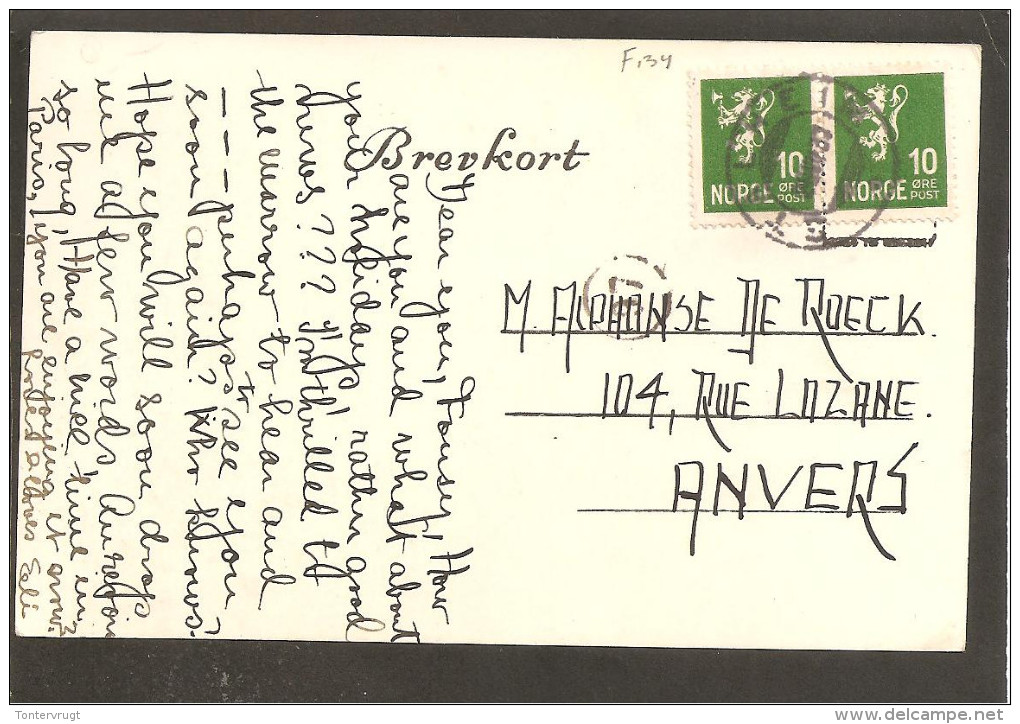 F,34
Brevkort
10 10
NORGE ØRE POST NORGE ØRE POST
M. ALPHONSE DE ROECK.
104, RUE LOZANE.
ANVERS
Dear you, Fonsey! How
are you and what about
your holiday, rather good
news??? I'm thrilled to
the marrow to hear and
--- perhaps to see you
soon again? Who knows!
Hope you will soon drop
me a few words, Aurevoir
so long, Have a nice time in
Paris, you are enjoying it now?
loves Eli
Tontervrugt
delcampe.net